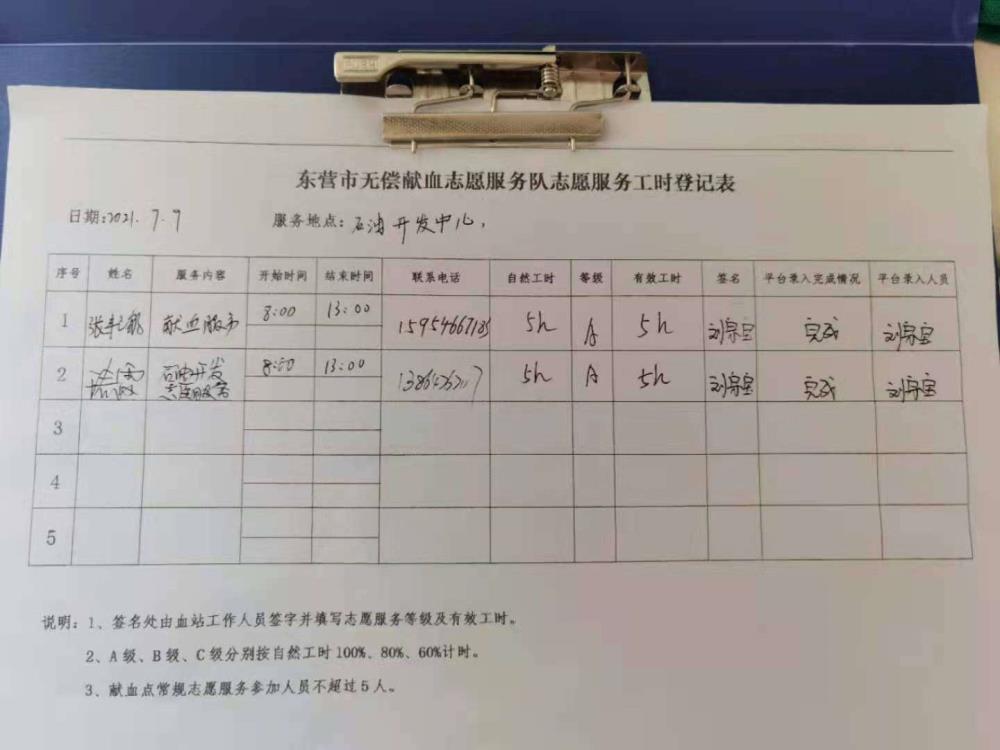 东营市无偿献血志愿服务队志愿服务工时登记表
日期:2021.7.9 服务地点:石油开发中心,
序号 姓名 服务内容 开始时间 结束时间 联系电话 自然工时 等级 有效工时 签名 平台录入完成情况 平台录入人员
1 献血服务 8:00 13:00 5h A 5h 刘宗宝 完成 刘宗宝
2 石油开发 8:00 13:00 5h A 5h 刘宗宝 完成 刘宗宝
志愿服务
3
4
5
说明:1、签名处由血站工作人员签字并填写志愿服务等级及有效工时。
2、A级、B级、C级分别按自然工时100%、80%、60%计时。
3、献血点常规志愿服务参加人员不超过5人。